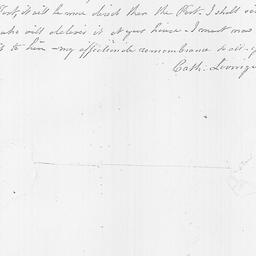 it will be more direct than the Post. I shall
who will deliver it at your house - I must now
it to him - my affectionate remembrance to all -
Cath.